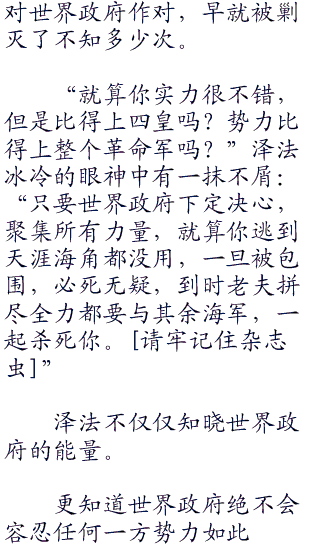 对世界政府作对，早就被剿
灭了不知多少次。
“就算你实力很不错，
但是比得上四皇吗？势力比
得上整个革命军吗？”泽法
冰冷的眼神中有一抹不屑：
“只要世界政府下定决心，
聚集所有力量，就算你逃到
天涯海角都没用，一旦被包
围，必死无疑，到时老夫拼
尽全力都要与其余海军，一
起杀死你。[请牢记住杂志
虫]”
泽法不仅仅知晓世界政
府的能量。
更知道世界政府绝不会
容忍任何一方势力如此